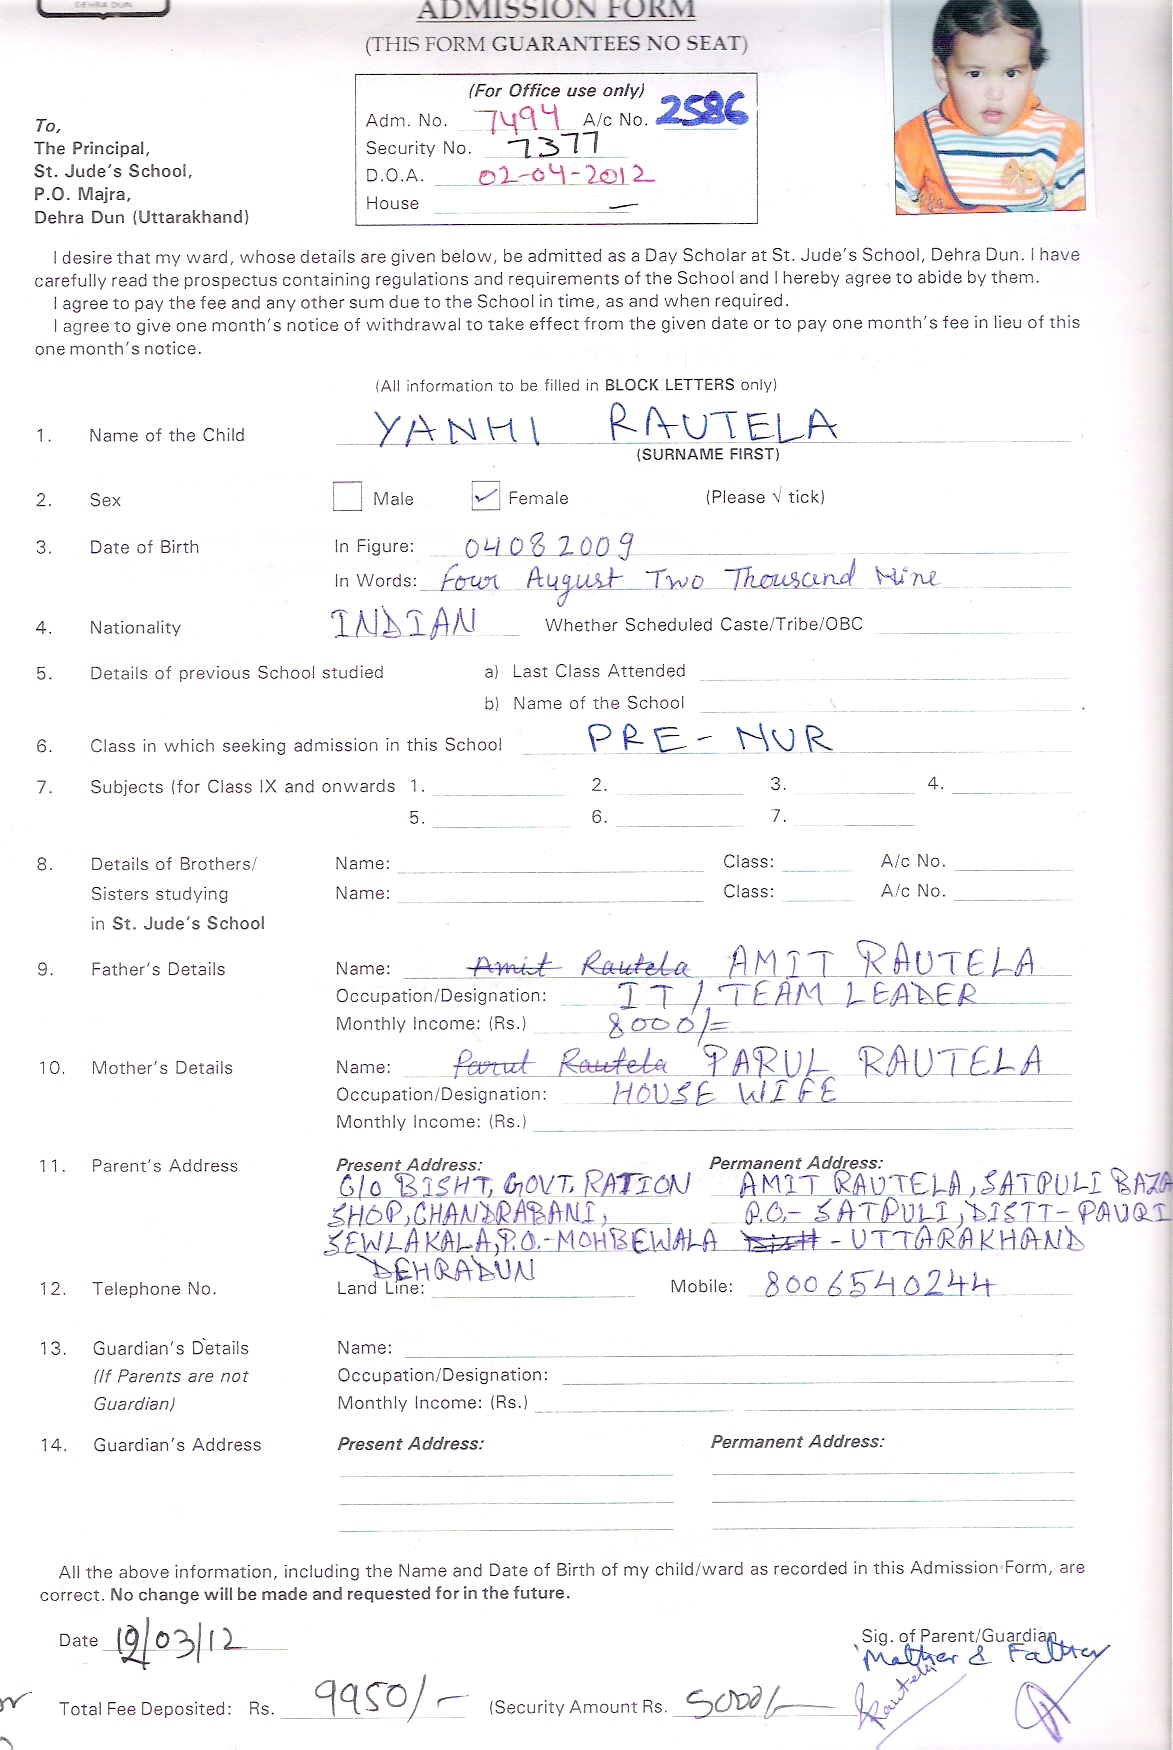 DEHRA DUN
ADMISSION FORM
(THIS FORM GUARANTEES NO SEAT)
(For Office use only)
Adm. No. 7494 A/c No. 2586
Security No. 7377
D.O.A. 02-04-2012
House —
To,
The Principal,
St. Jude's School,
P.O. Majra,
Dehra Dun (Uttarakhand)
I desire that my ward, whose details are given below, be admitted as a Day Scholar at St. Jude's School, Dehra Dun. I have
carefully read the prospectus containing regulations and requirements of the School and I hereby agree to abide by them.
I agree to pay the fee and any other sum due to the School in time, as and when required.
I agree to give one month's notice of withdrawal to take effect from the given date or to pay one month's fee in lieu of this
one month's notice.
(All information to be filled in BLOCK LETTERS only)
1. Name of the Child YANHI RAUTELA
(SURNAME FIRST)
2. Sex Male ✓ Female (Please √ tick)
3. Date of Birth In Figure: 04082009
In Words: Four August Two Thousand Nine
4. Nationality INDIAN Whether Scheduled Caste/Tribe/OBC
5. Details of previous School studied a) Last Class Attended
b) Name of the School
6. Class in which seeking admission in this School PRE-NUR
7. Subjects (for Class IX and onwards 1. 2. 3. 4.
5. 6. 7.
8. Details of Brothers/ Name: Class: A/c No.
Sisters studying Name: Class: A/c No.
in St. Jude's School
9. Father's Details Name: Amit Rautela AMIT RAUTELA
Occupation/Designation: IT / TEAM LEADER
Monthly Income: (Rs.) 8000/=
10. Mother's Details Name: Parul Rautela PARUL RAUTELA
Occupation/Designation: HOUSE WIFE
Monthly Income: (Rs.)
11. Parent's Address Present Address: Permanent Address:
C/O BISHT, GOVT. RATION AMIT RAUTELA, SATPULI BAZA
SHOP, CHANDRABANI, P.O.- SATPULI, DISTT- PAURI
SEWLAKALA, P.O.-MOHBEWALA Distt - UTTARAKHAND
DEHRADUN
12. Telephone No. Land Line: Mobile: 8006540244
13. Guardian's Details Name:
(If Parents are not Occupation/Designation:
Guardian) Monthly Income: (Rs.)
14. Guardian's Address Present Address: Permanent Address:
All the above information, including the Name and Date of Birth of my child/ward as recorded in this Admission Form, are
correct. No change will be made and requested for in the future.
Date 19/03/12 Sig. of Parent/Guardian
Mother & Father
Rautela
Total Fee Deposited: Rs. 9950/- (Security Amount Rs. 5000/-